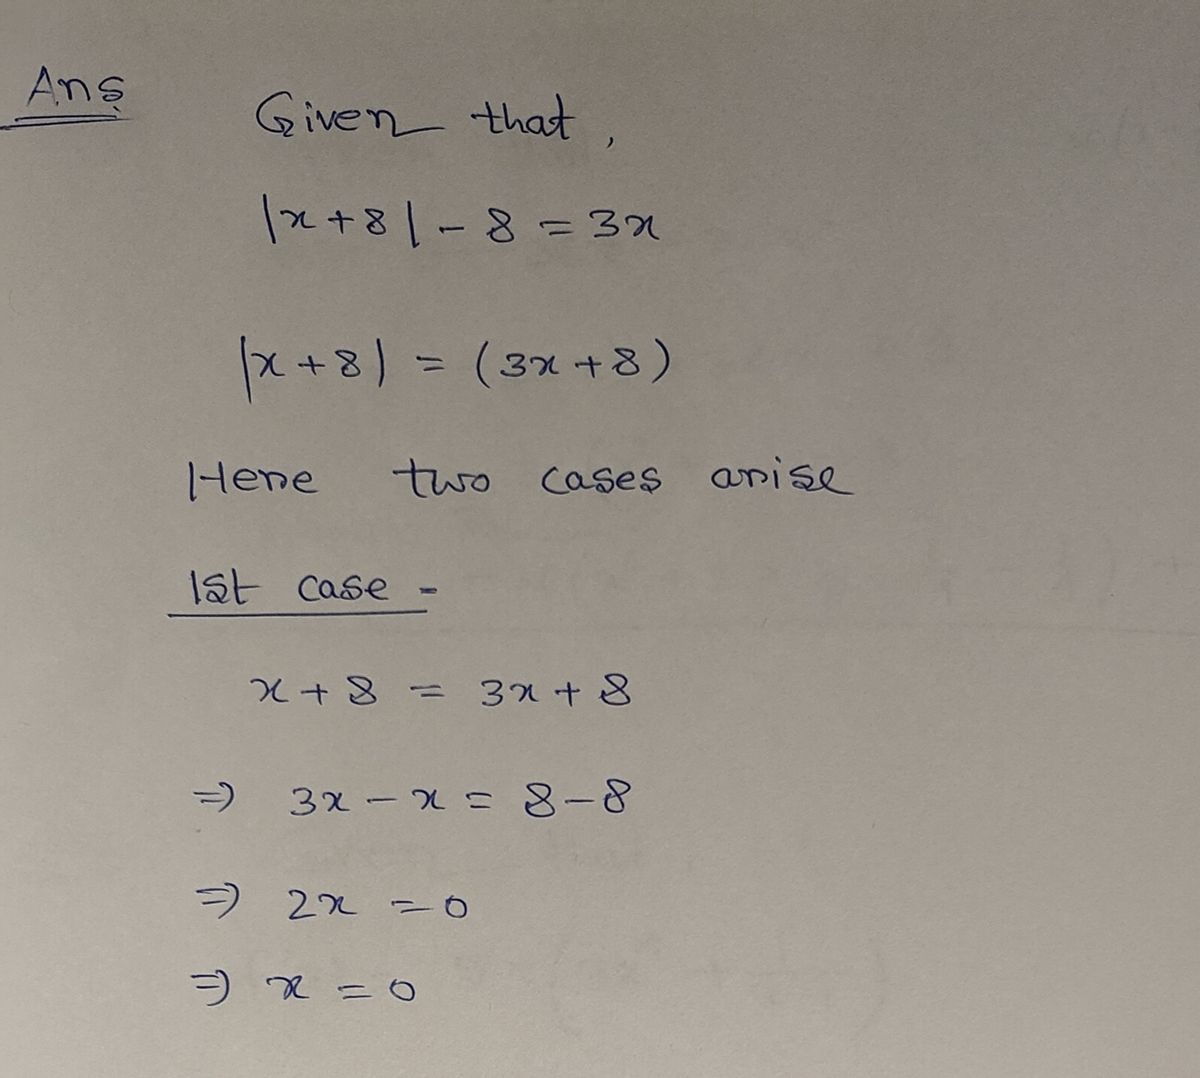 Ans
Given that,
|x+8|-8 = 3x
|x+8| = (3x+8)
Here two cases arise
1st case -
x+8 = 3x+8
⇒ 3x-x = 8-8
⇒ 2x = 0
⇒ x = 0